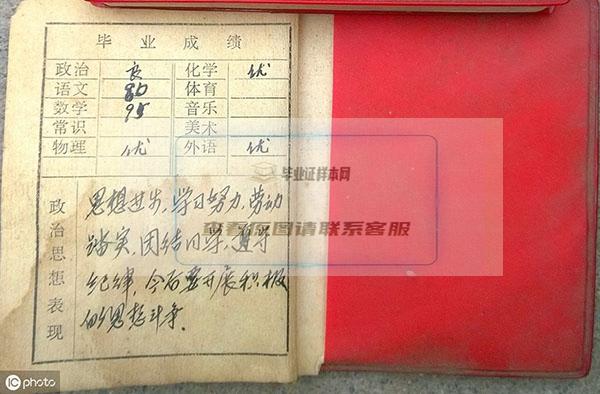 毕业成绩
政治 良 化学 优
语文 80 体育
数学 95 音乐
常识 美术
物理 优 外语 优
毕业证样本网
查看原图请联系客服
政治思想表现
思想进步,学习努力,劳动
踏实,团结同学,遵守
纪律,今后要开展积极
的思想斗争.
IC photo